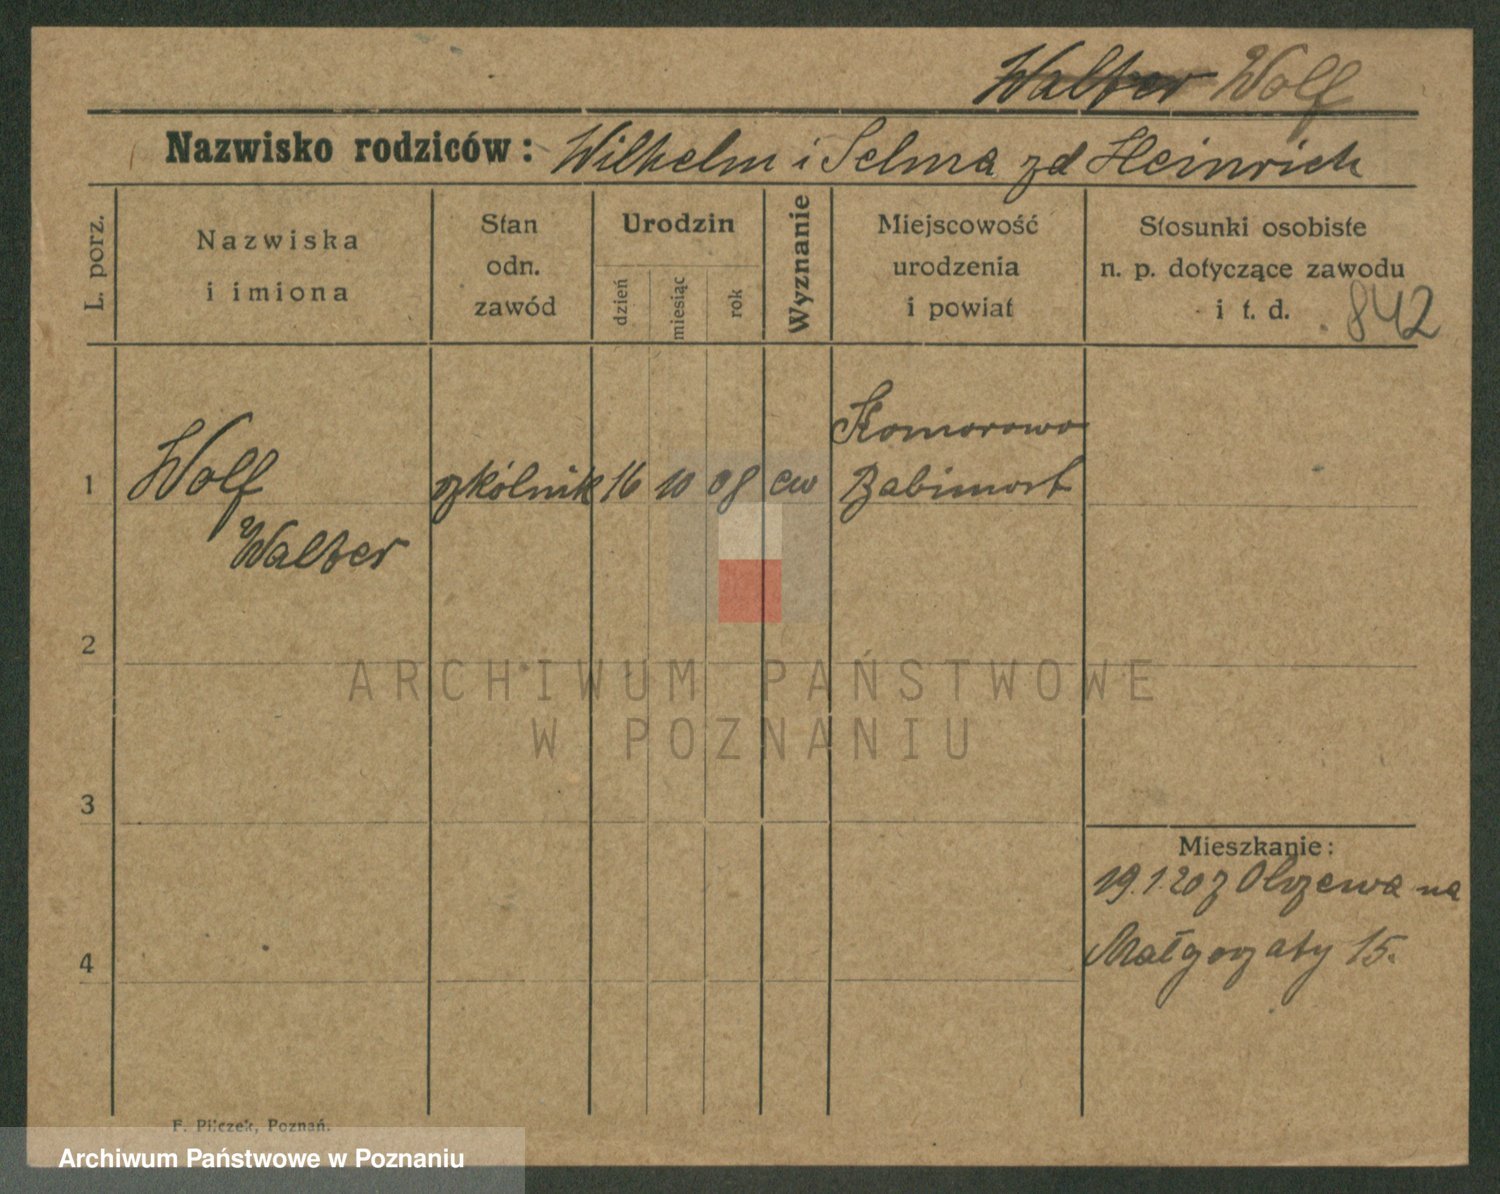 Walter Wolf
Nazwisko rodziców: Wilhelm i Selma zd Heinrich
L. porz.
Nazwiska
i imiona
Stan
odn.
zawód
Urodzin
dzień
miesiąc
rok
Wyznanie
Miejscowość
urodzenia
i powiat
Stosunki osobiste
n. p. dotyczące zawodu
i t. d.
842
1
Wolf
Walter
szkólnik
16
10
08
ew
Komorowo
Babimost
2
3
4
Mieszkanie:
19.1.20 z Olszewa na
Małgorzaty 15.
F. Pilczek, Poznań.
ARCHIWUM PAŃSTWOWE
W POZNANIU
Archiwum Państwowe w Poznaniu